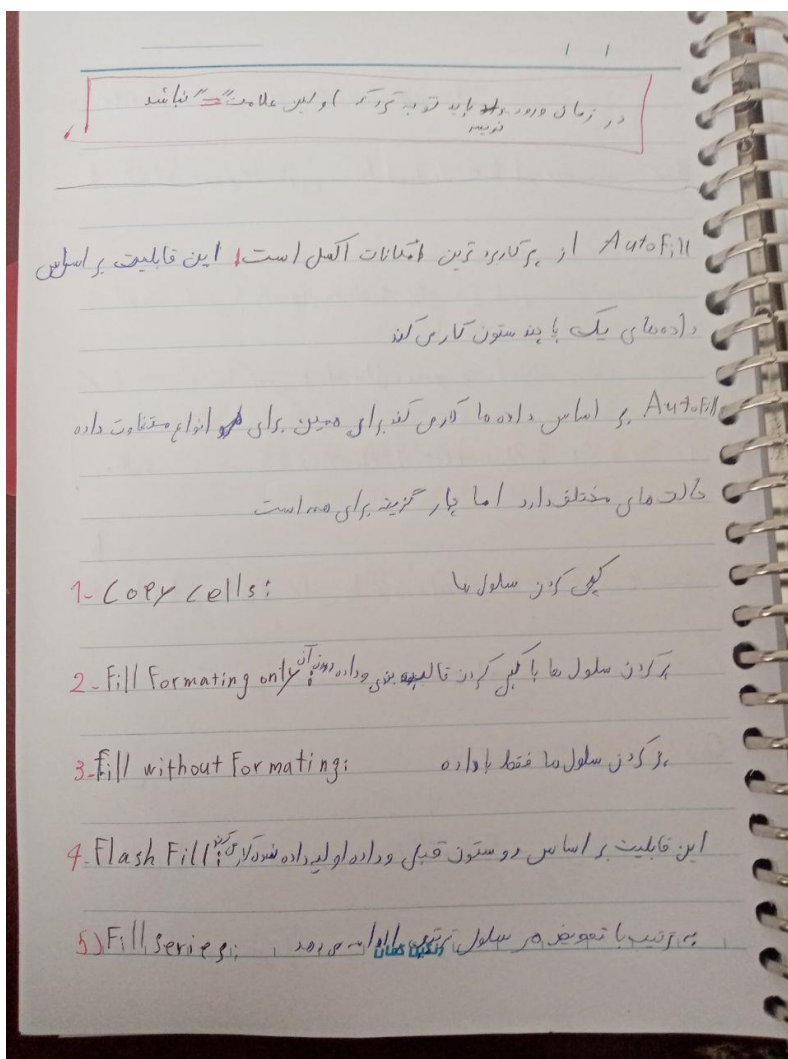 در زمان ورود داده باید توجه کرد که اولین علامت "=" نباشد
AutoFill از پرکاربردترین امکانات اکسل است! این قابلیت بر اساس
داده‌های یک یا چند ستون کار می‌کند
AutoFill بر اساس داده ها کار می کند برای همین برای انواع متفاوت داده
حالت های مختلف دارد اما چهار گزینه برای همه است
1- Copy cells: کپی کردن سلول ها
2- Fill Formating only: پر کردن سلول ها با کپی کردن قالب بندی و داده درون آن
3- Fill without Formating: پر کردن سلول ها فقط با داده
4- Flash Fill: این قابلیت بر اساس دو ستون قبلی و داده اولیه داده شده کار می کند
5) Fill series: به ترتیب با تعویض هر سلول ترتیب ادامه می دهد